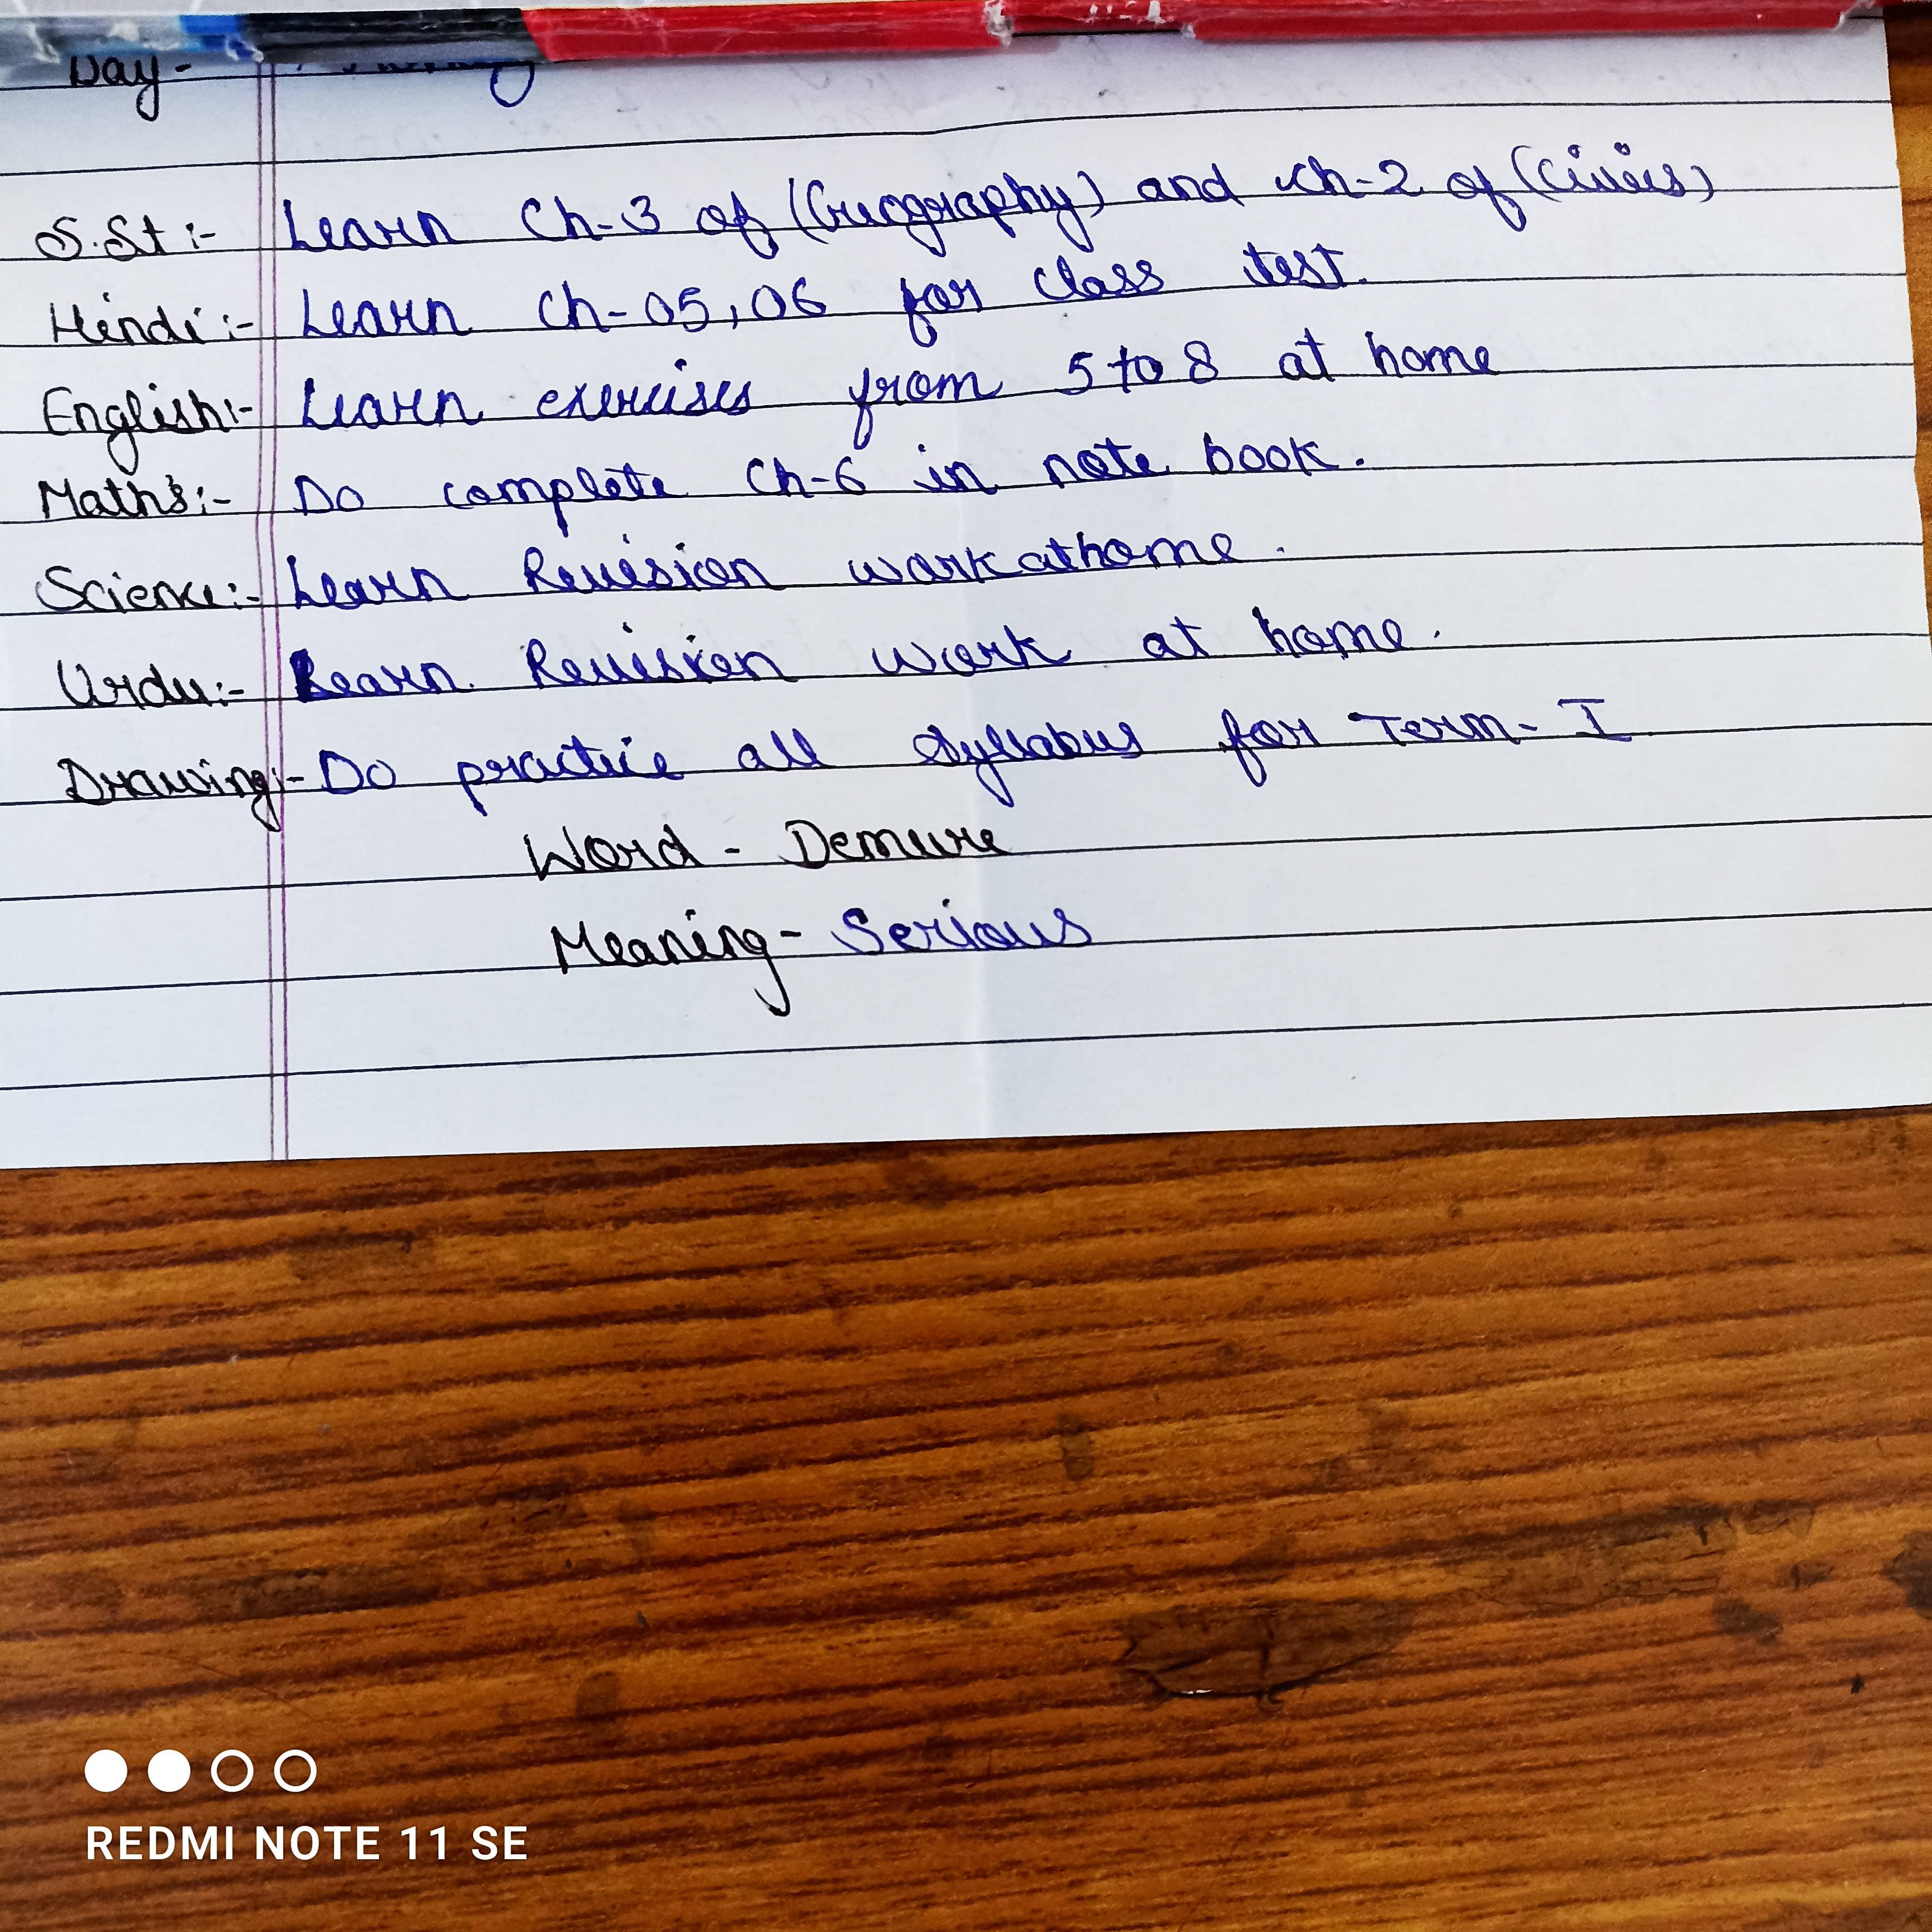 Day-
S.St:- Learn Ch-3 of (Geography) and Ch-2 of (Civics)
Hindi:- Learn Ch-05,06 for class test.
English:- Learn exercises from 5 to 8 at home
Maths:- Do complete Ch-6 in note book.
Science:- Learn Revision work at home.
Urdu:- Learn Revision work at home.
Drawing:- Do practice all Syllabus for Term-I
Word - Demure
Meaning - Serious
REDMI NOTE 11 SE